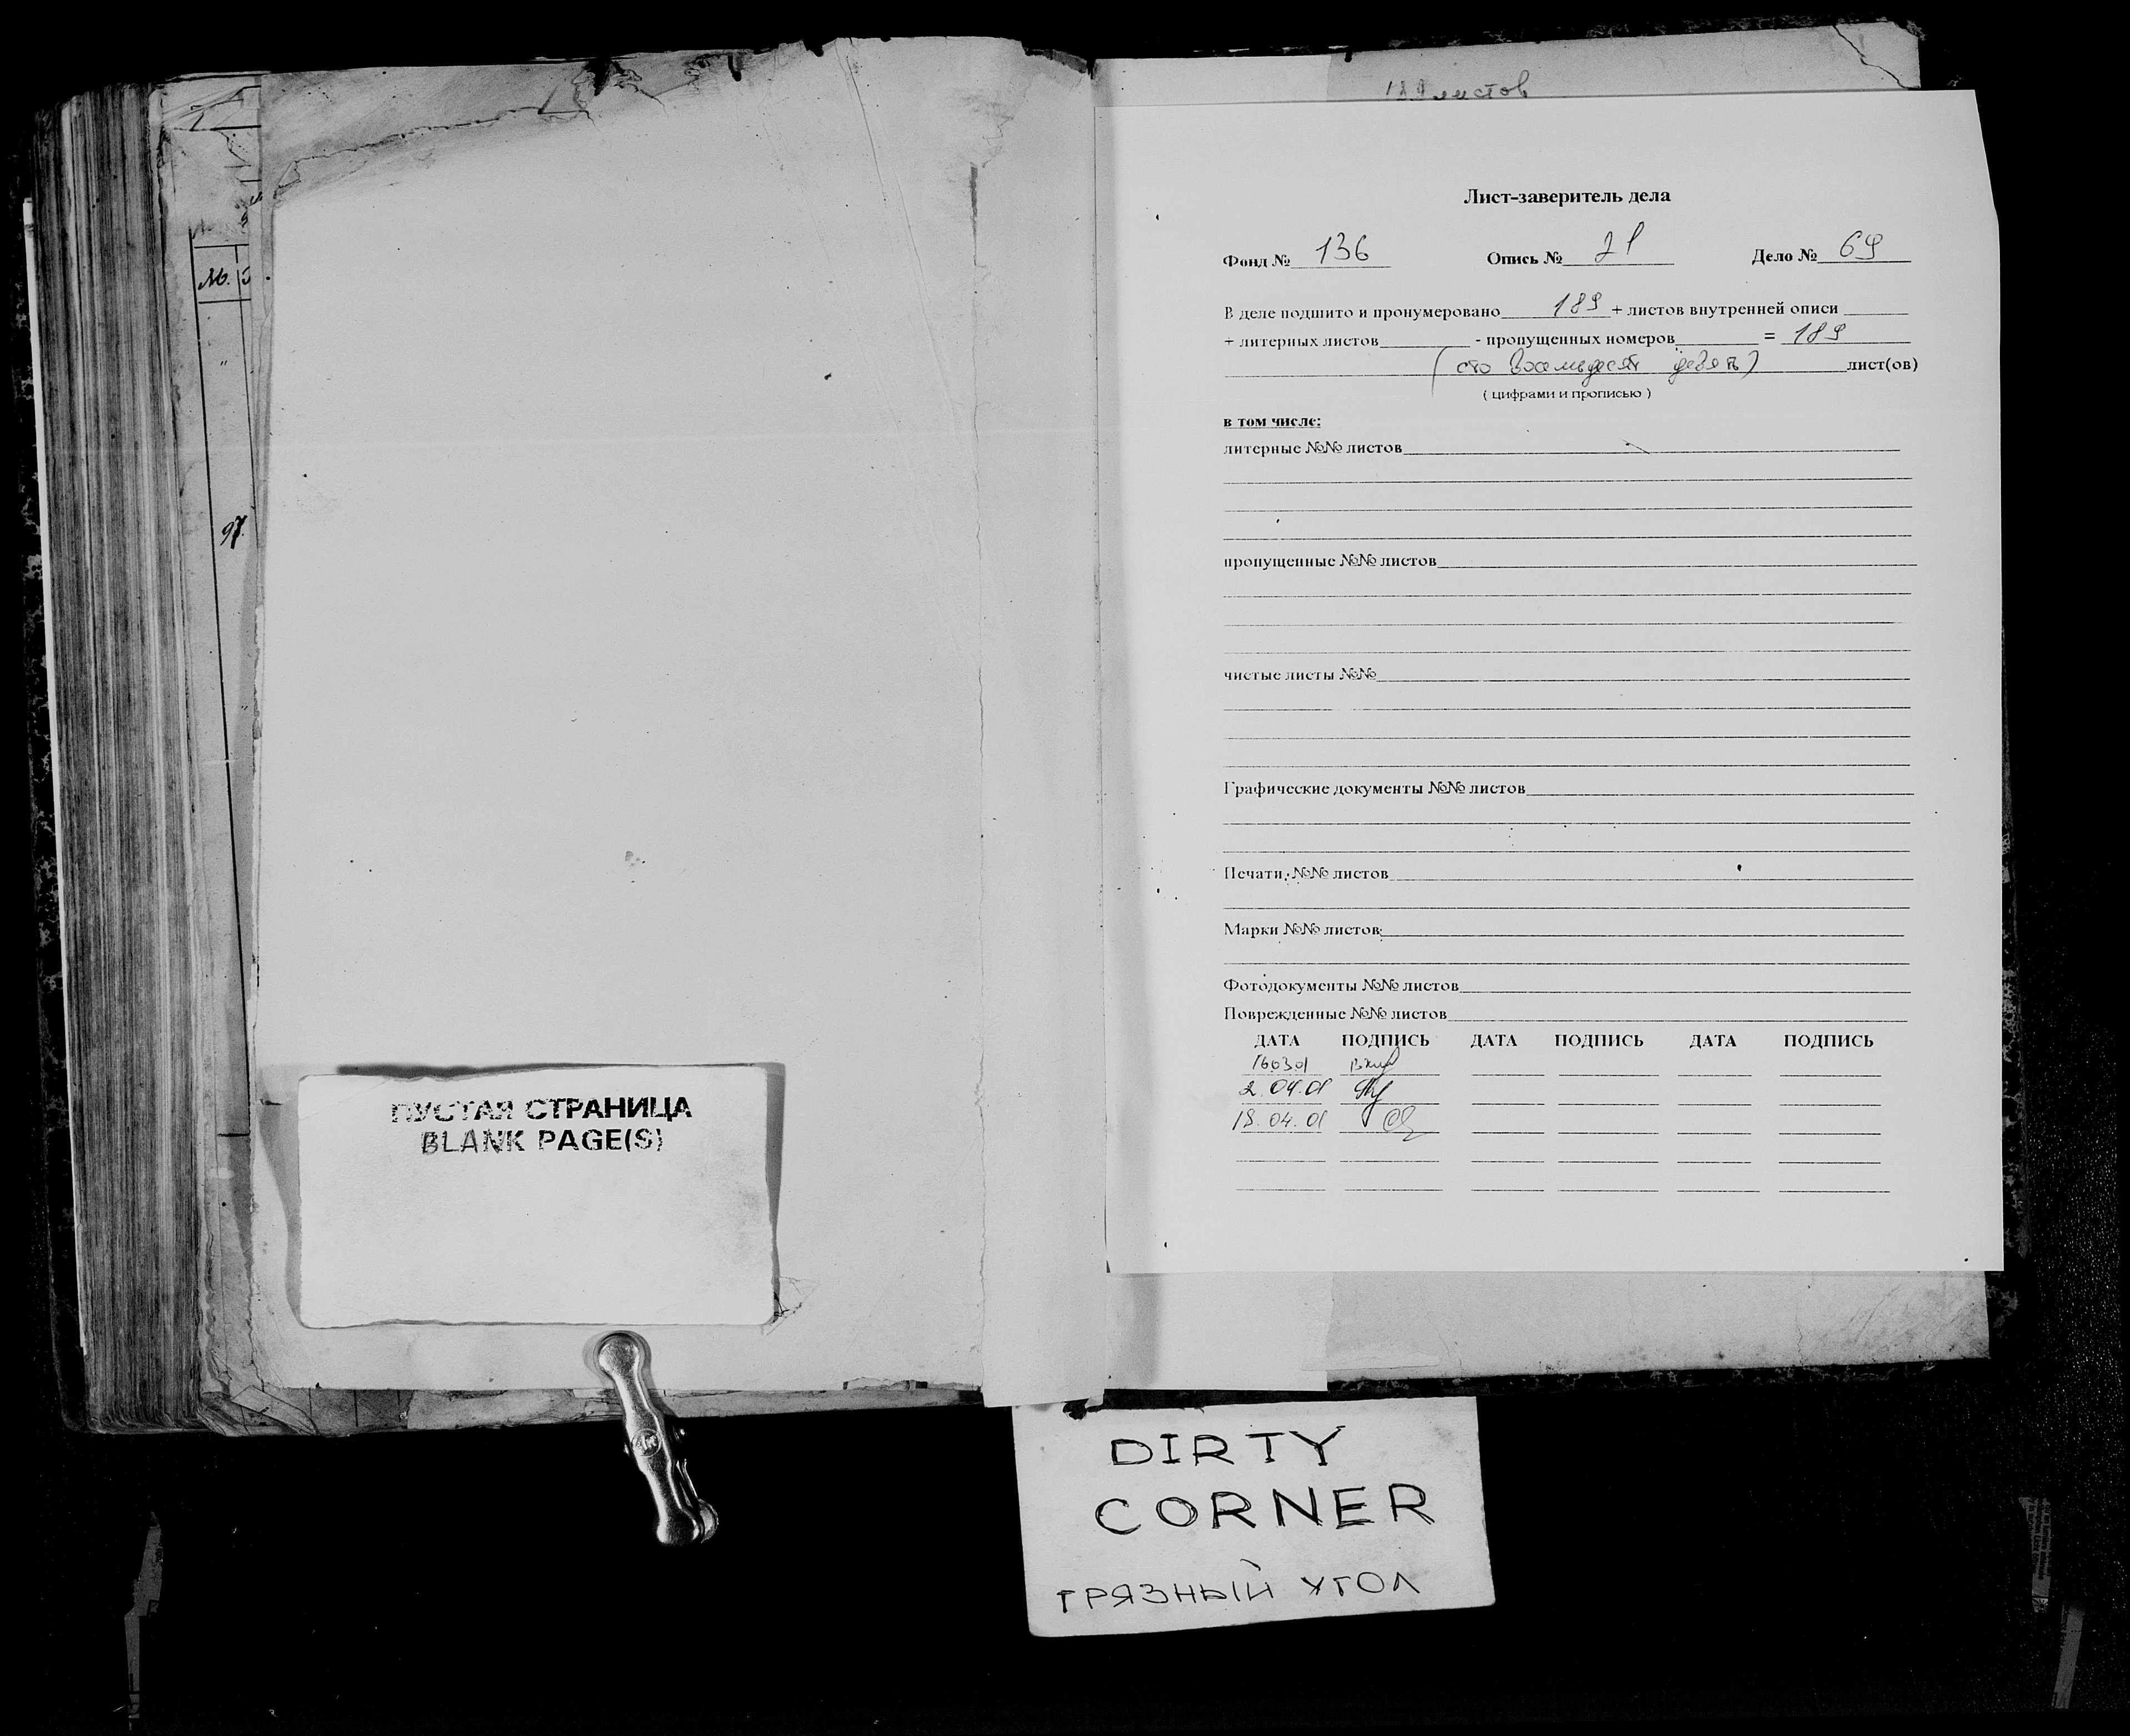 189 листов
Лист-заверитель дела
Фонд № 136 Опись № 21 Дело № 69
В деле подшито и пронумеровано 189 + листов внутренней описи
+ литерных листов - пропущенных номеров = 189
(сто восемьдесят девять) лист(ов)
( цифрами и прописью )
в том числе:
литерные №№ листов
пропущенные №№ листов
чистые листы №№
Графические документы №№ листов
Печати №№ листов
Марки №№ листов
Фотодокументы №№ листов
Поврежденные №№ листов
ДАТА ПОДПИСЬ ДАТА ПОДПИСЬ ДАТА ПОДПИСЬ
160301
2.04.01
18.04.01
М.
97.
ПУСТАЯ СТРАНИЦА
BLANK PAGE(S)
DIRTY
CORNER
ГРЯЗНЫЙ УГОЛ